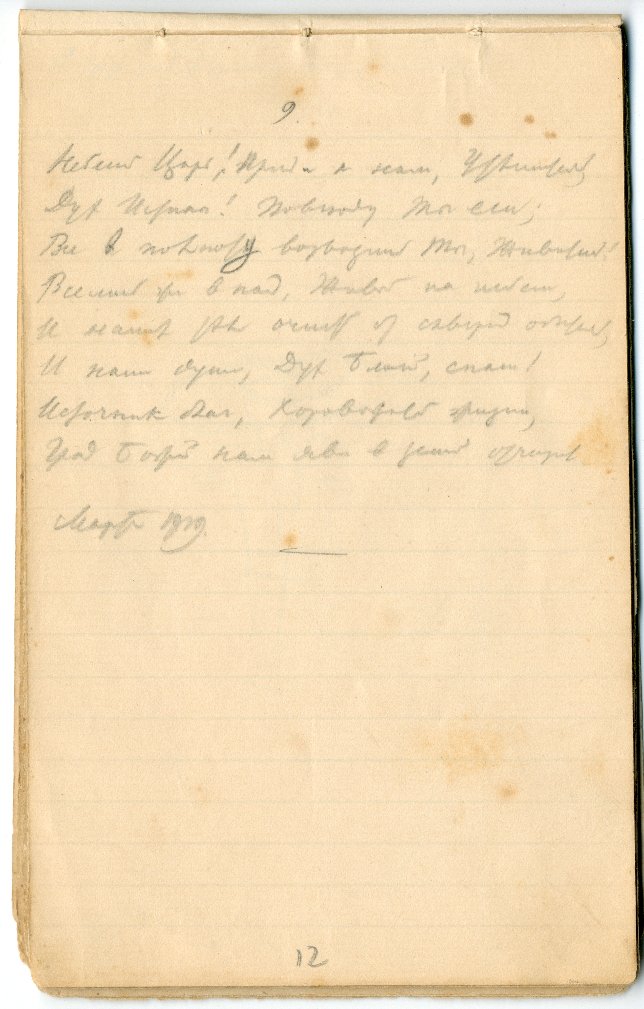 9.
Небесный Царь! Приди к нам, Утешитель,
Дух Истины! Повсюду Ты еси;
Все в полноту возводишь Ты, Живитель!
Вселись же в нас, Живой на небеси,
И наших душ очисти от скверн обитель,
И наши души, Дух Благой, спаси!
Источник благ, Хороводец жизни,
Град Божий нам яви в отчизне
Март 1919.
12